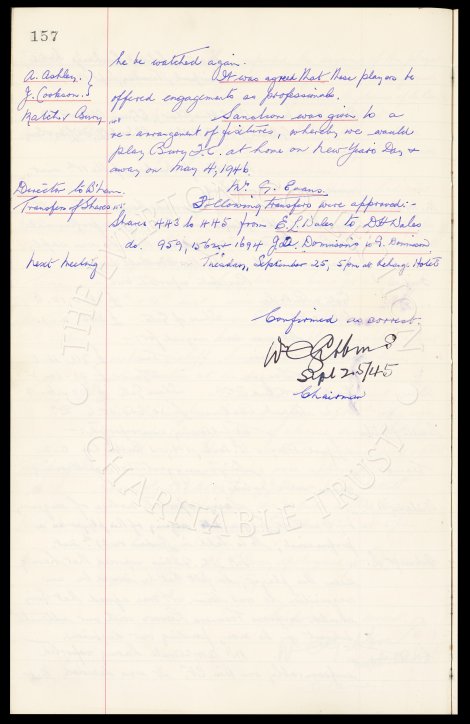 157
he be watched again.
A. Ashley. } It was agreed that these players be
J. Cookson. } offered engagements as professionals.
Match v Bury Sanction was given to a
re-arrangement of fixtures, whereby we would
play Bury F.C. at home on New Years Day &
away on May 4, 1946.
Director to B'ham. Mr. G. Evans.
Transfers of Shares Following transfers were approved:-
Shares 443 to 445 from E.L. Dales to DH Dales
do. 959, 1694 Dennison to Dennison
Next Meeting Tuesday, September 25, 5pm at Hotel
Confirmed as correct.
Sept 25/45
Chairman
THE EVERTON COLLECTION
CHARITABLE TRUST